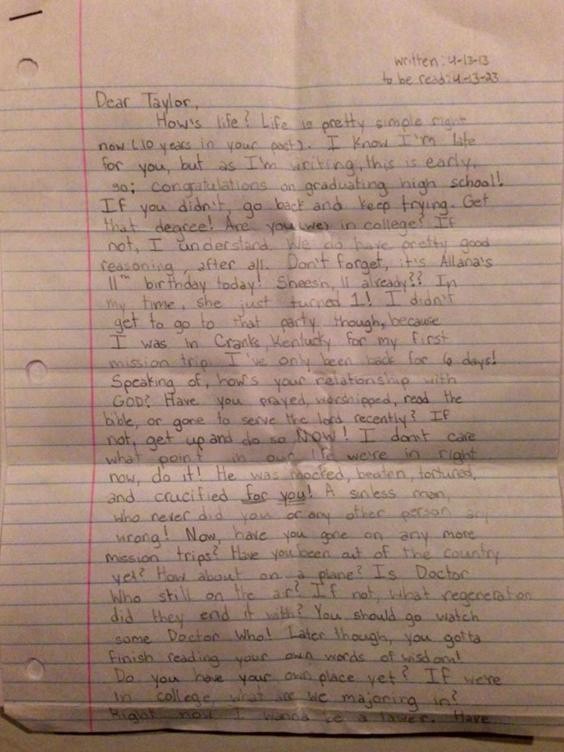 written: 4-13-13
to be read: 4-13-23
Dear Taylor,
How's life? Life is pretty simple right
now (10 years in your past). I know I'm late
for you, but as I'm writing, this is early,
so; congratulations on graduating high school!
If you didn't, go back and keep trying. Get
that degree! Are you(we) in college? If
not, I understand. We do have pretty good
reasoning, after all. Don't forget, it's Allana's
11th birthday today! Sheesh, 11 already?? In
my time, she just turned 1! I didn't
get to go to that party though, because
I was in Cranks, Kentucky for my first
mission trip. I've only been back for 6 days!
Speaking of, how's your relationship with
GOD? Have you prayed, worshipped, read the
bible, or gone to serve the lord recently? If
not, get up and do so NOW! I don't care
what point in our life we're in right
now, do it! He was mocked, beaten, tortured,
and crucified for you! A sinless man,
who never did you or any other person any
wrong! Now, have you gone on any more
mission trips? Have you been out of the country
yet? How about on a plane? Is Doctor
Who still on the air? If not, what regeneration
did they end it with? You should go watch
some Doctor Who! Later though, you gotta
finish reading your own words of wisdom!
Do you have your own place yet? If we're
in college, what are we majoring in?
Right now I wanna be a lawer. Have